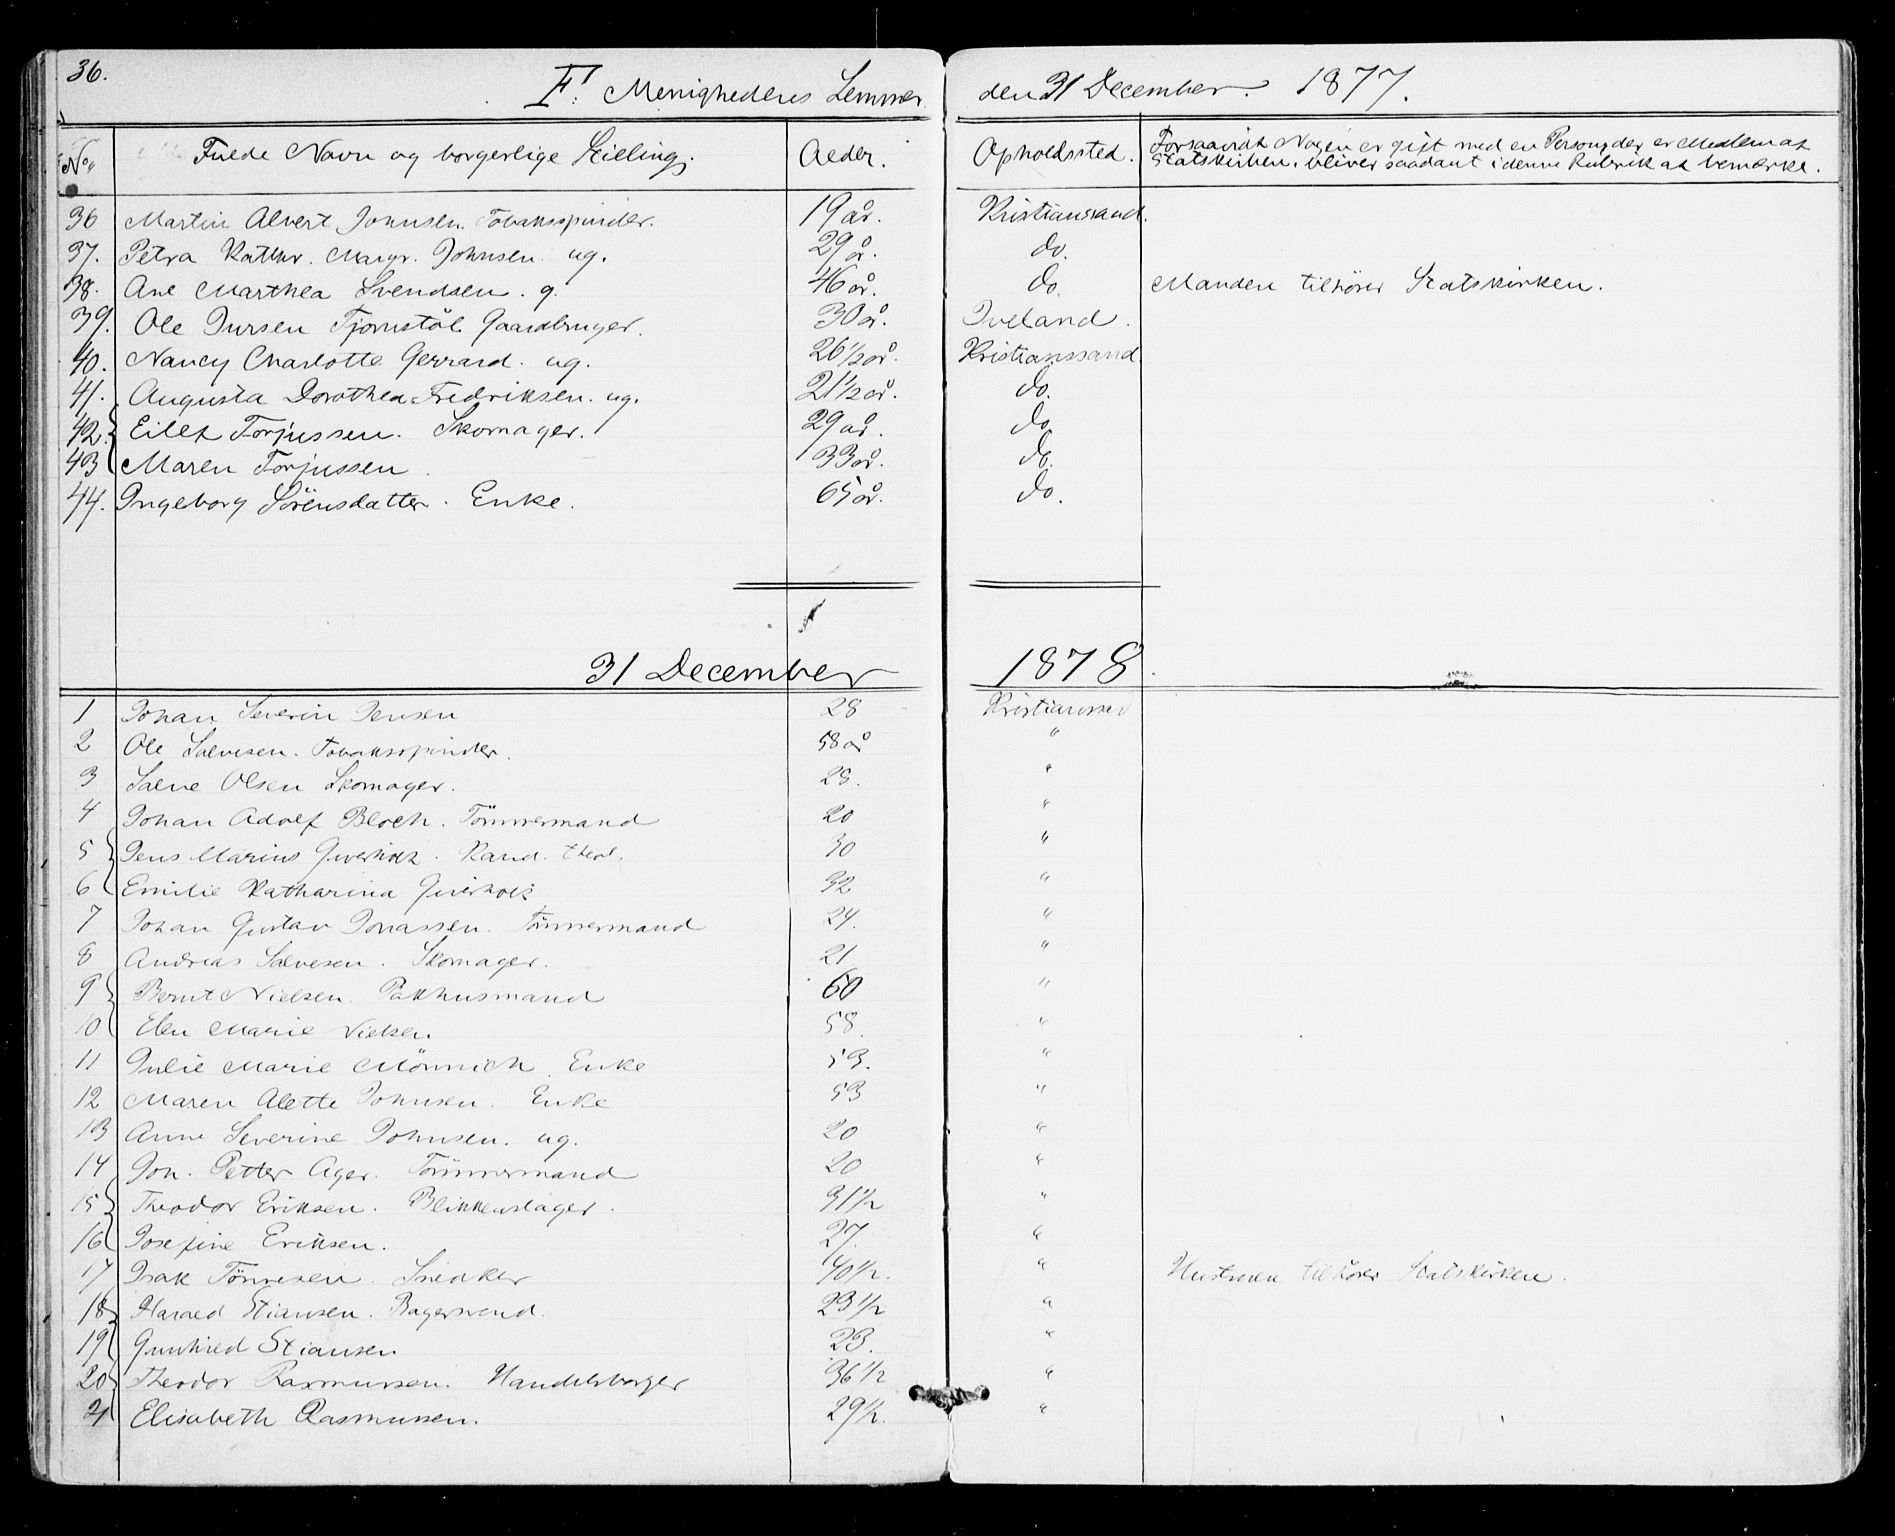 36.
F. Menighedens Lemmer den 31 December 1877.
No. Fulde Navn og borgerlige Stilling. Alder. Opholdssted. Forsaavidt Nogen er gift med en Person, der er Medlem af
Statskirken, bliver saadant i denne Rubrik at bemærke.
36 Martin Albert Johnsen. Tobaksspinder. 19 år. Kristianssand.
37. Petra Kathr. Margr. Johnsen. ug. 29 år. do.
38. Ane Marthea Svendsen. g. 46 år. do. Manden tilhører Statskirken.
39. Ole Jursen Tjomstöl. Gaardbruger. 30 år. Iveland.
40. Nancy Charlotte Gerrard. ug. 26 1/2 år. Kristianssand
41. Augusta Dorothea Fredriksen. ug. 21 1/2 år. do.
42. Eilef Torjussen. Skomager. 29 år. do.
43 Maren Torjussen. 33 år. do.
44. Ingeborg Sörensdatter. Enke. 65 år. do.
31 December 1878.
1 Johan Severin Jensen 28 Kristianssand
2 Ole Salvesen. Tobaksspinder. 58 år "
3 Salve Olsen Skomager. 28. "
4 Johan Adolf Bloch. Tömmermand 20 "
5 Jens Marius Giverholt. Kand. theol. 30 "
6 Emilie Katharina Giverholt 32 "
7 Johan Gustav Jonassen. Tömmermand 24. "
8 Andreas Salvesen. Skomager. 21 "
9 Bernt Nielsen. Pakhusmand 60 "
10 Elen Marie Nielsen. 58. "
11 Julie Marie Mönnich. Enke 53. "
12 Maren Alette Johnsen. Enke 53 "
13 Anne Severine Johnsen. ug. 20 "
14 Joh. Petter Ager. Tömmermand 20 "
15 Theodor Eriksen. Blikkenslager. 31 1/2 "
16 Josefine Eriksen. 27. "
17 Isak Tönnesen. Snedker 40 1/2. " Hustruen tilhører Statskirken.
18 Harald Stiansen. Bagersvend. 23 1/2 "
19 Gunhild Stiansen 23. "
20 Theodor Rasmussen. Handelsborger 36 1/2 "
21 Elisabeth Rasmussen. 29 1/2. "